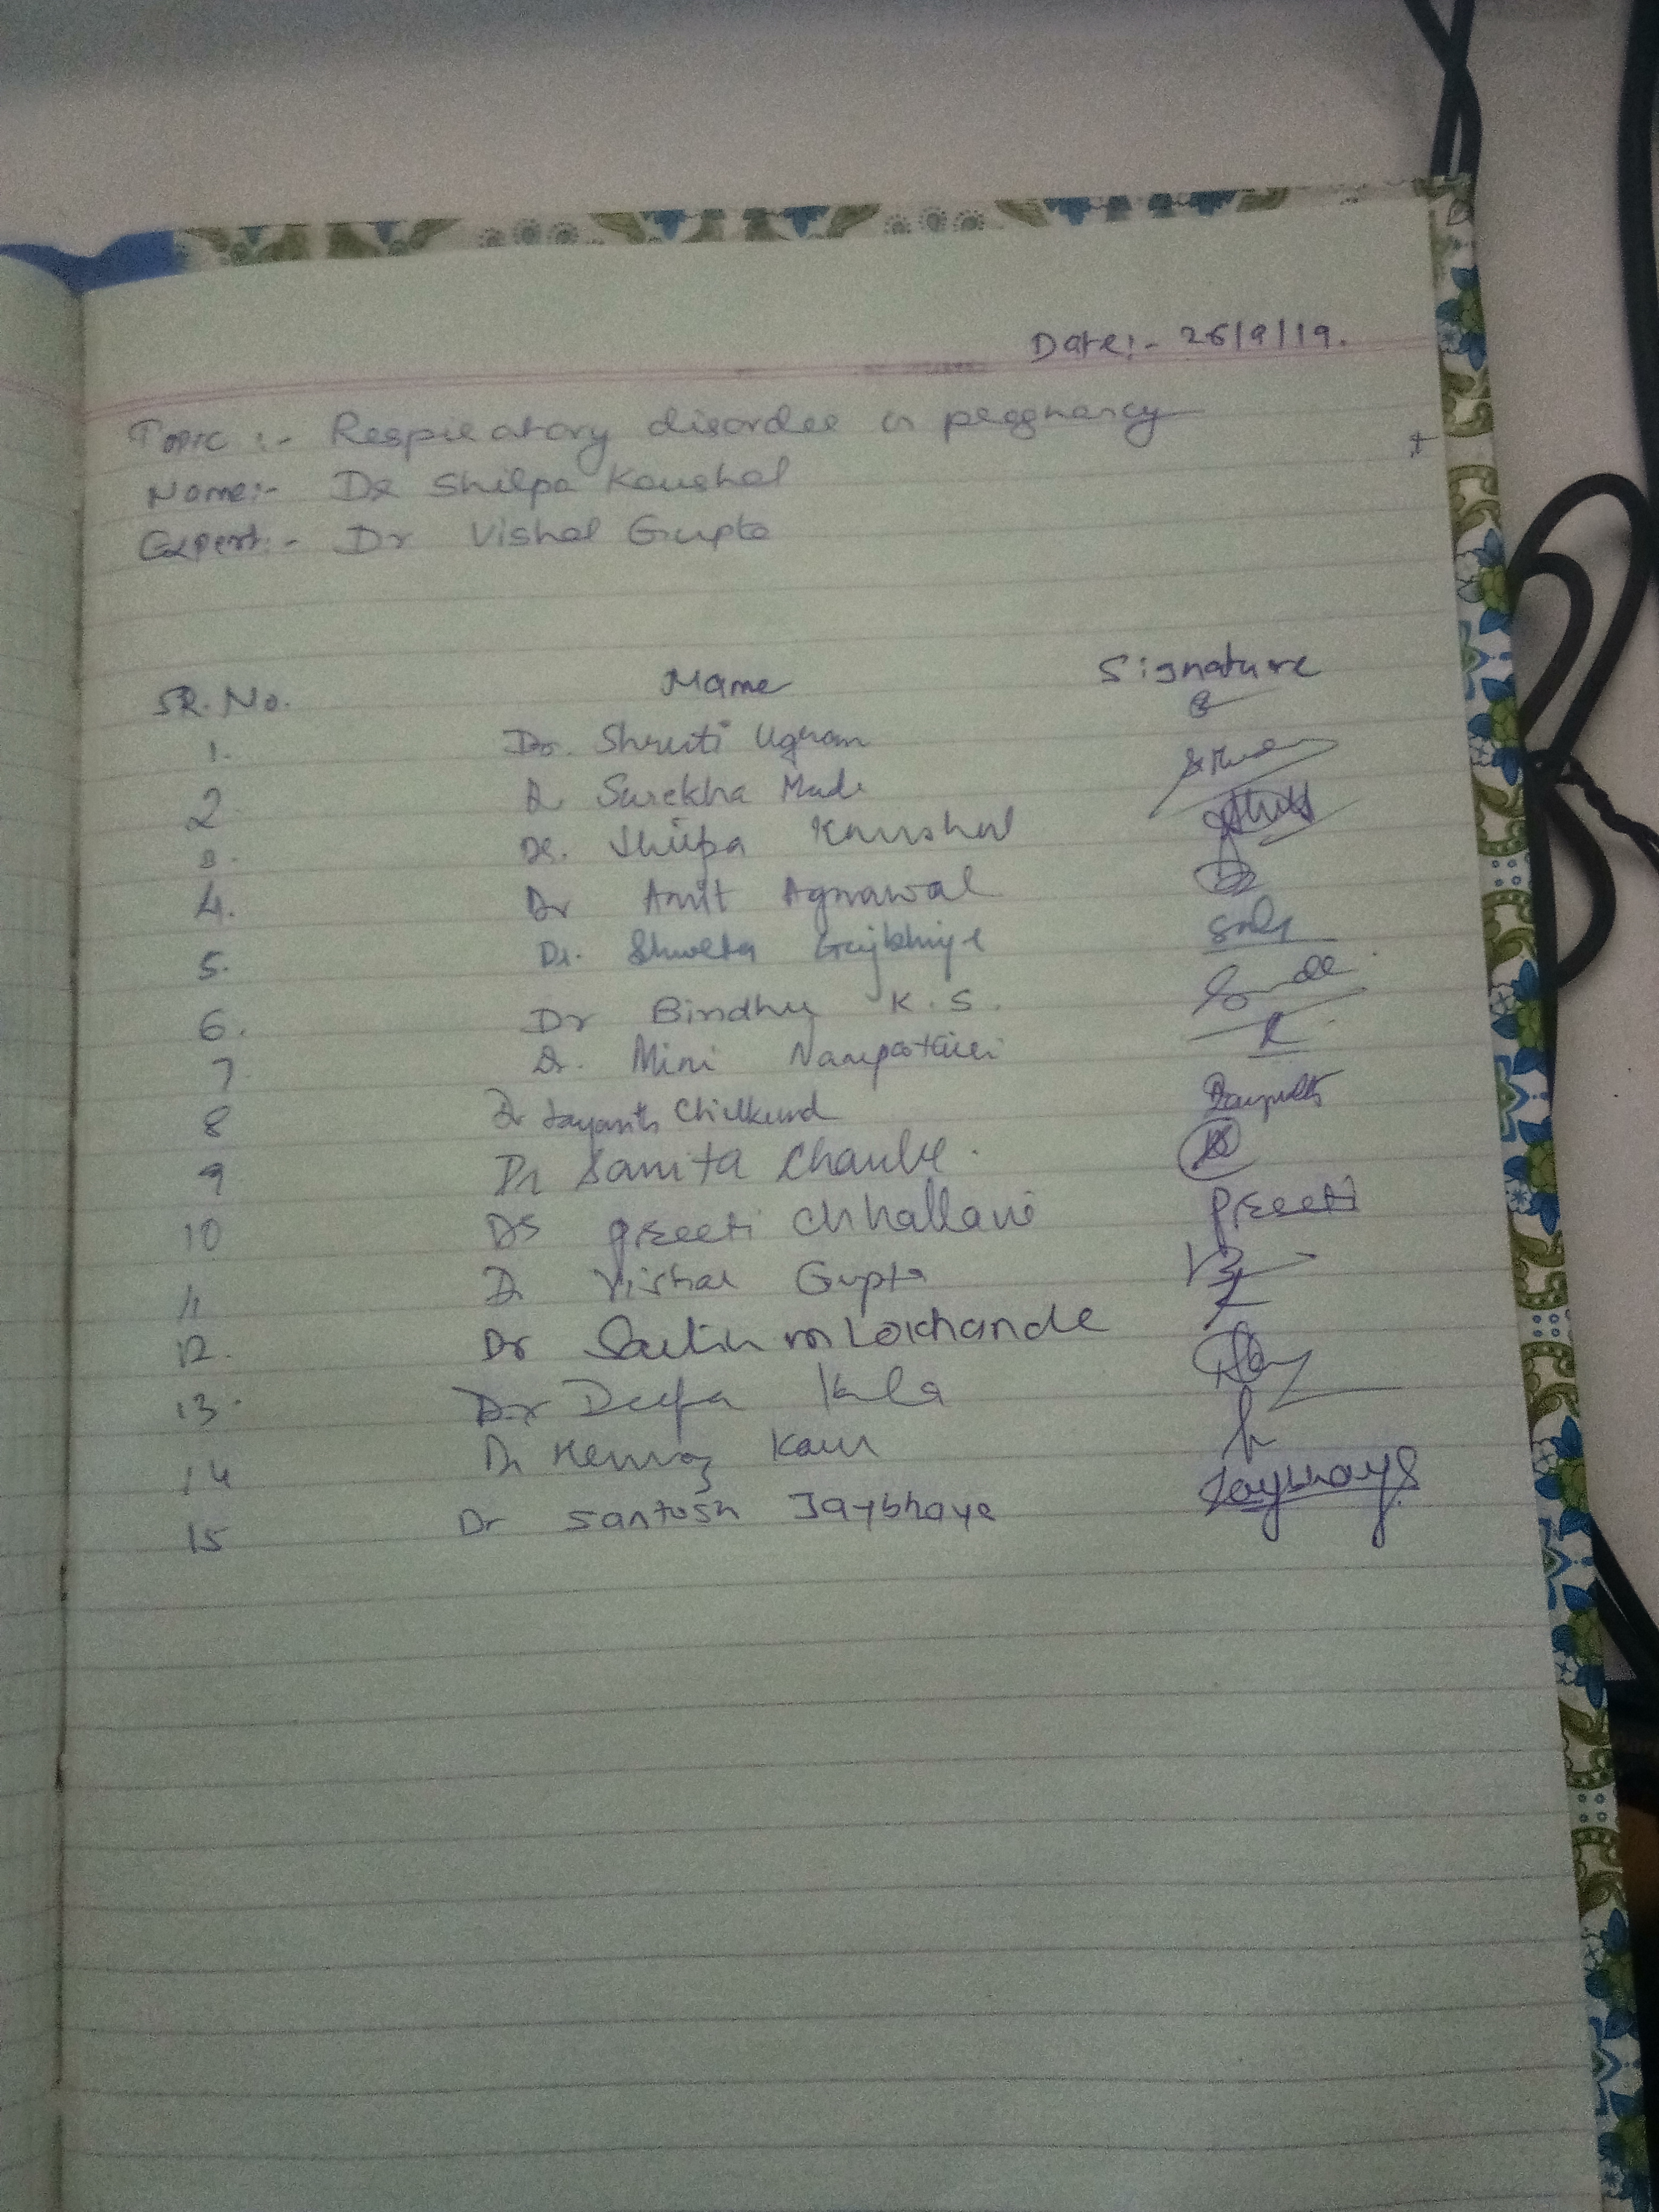 Date:- 26/9/19.
Topic :- Respieatory disordee in peggnancy
Name:- De Shilpa Kaushal
Expert:- Dr Vishal Gupta
SR. No. Name Signature
1. Dr. Shruti Ugran
2. Dr Surekha
3. De. Shilpa Kaushal
4. Dr Amit Agrawal
5. Dr. Shweta Gajbhiye
6. Dr Bindhu K.S.
7. Dr. Mini Nampoothiri
8 Dr Jayanth
9 Dr Sanita Chaube.
10 Dr preeti chhallani preeti
11 Dr Vishal Gupta
12. Dr Sachin m Lokhande
13. Dr Deepa Kala
14 Dr Kaur
15 Dr Santosh Jaybhaye Jaybhaye